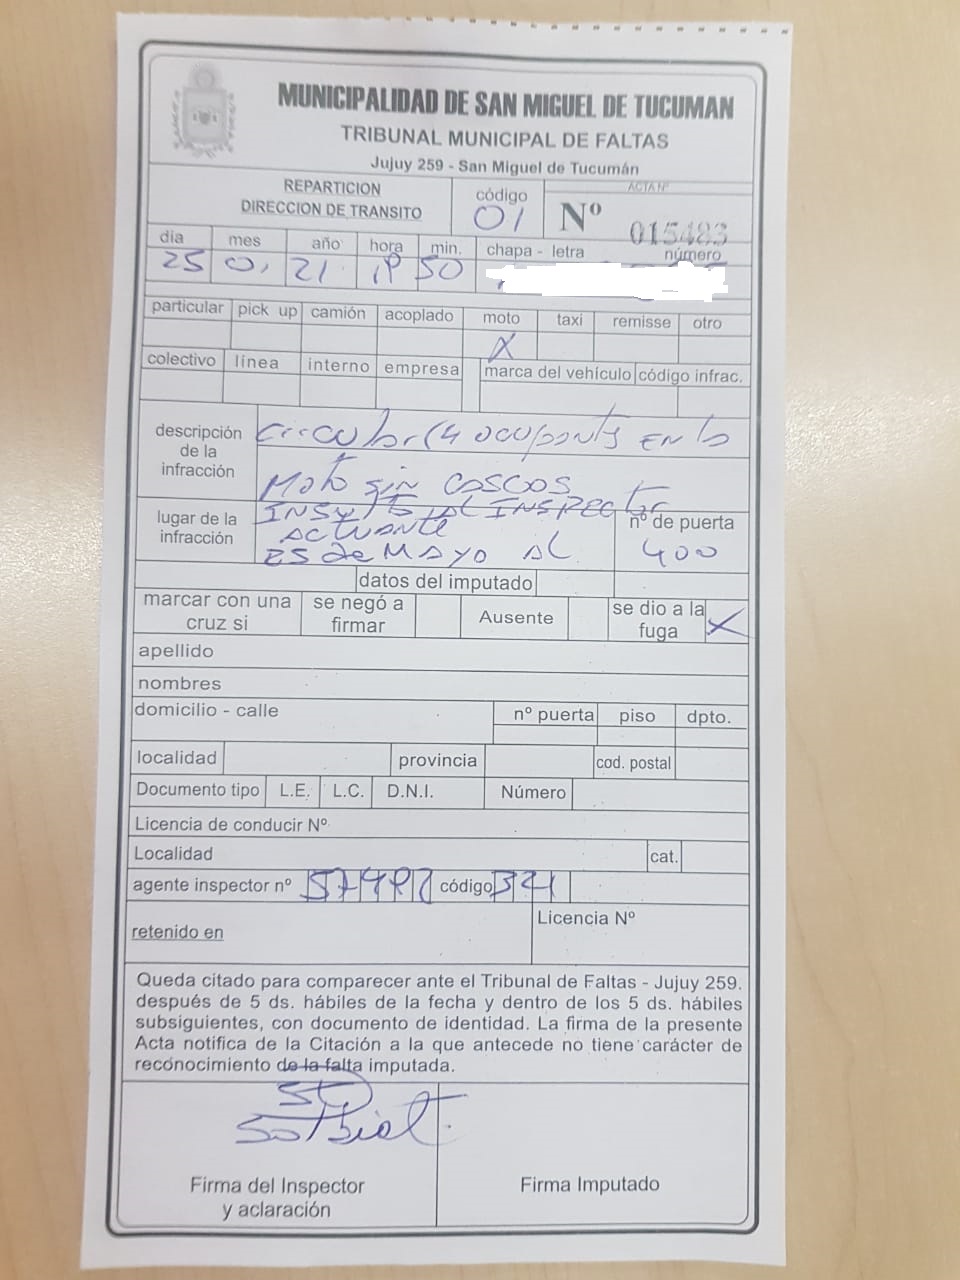 MUNICIPALIDAD DE SAN MIGUEL DE TUCUMAN
TRIBUNAL MUNICIPAL DE FALTAS
Jujuy 259 - San Miguel de Tucumán
REPARTICION
DIRECCION DE TRANSITO
código
01
ACTA Nº
Nº 015483
dia mes año hora min. chapa - letra número
25 01 21 50
particular pick up camión acoplado moto taxi remisse otro
X
colectivo línea interno empresa marca del vehículo código infrac.
descripción de la infracción
circular (4 ocupantes EN la
Moto sin CASCOS
INSULTO AL INSPECTOR
ACTUANTE
lugar de la infracción
25 de MAYO AL
nº de puerta
400
datos del imputado
marcar con una cruz si se negó a firmar Ausente se dio a la fuga X
apellido
nombres
domicilio - calle nº puerta piso dpto.
localidad provincia cod. postal
Documento tipo L.E. L.C. D.N.I. Número
Licencia de conducir Nº
Localidad cat.
agente inspector nº código
retenido en Licencia Nº
Queda citado para comparecer ante el Tribunal de Faltas - Jujuy 259.
después de 5 ds. hábiles de la fecha y dentro de los 5 ds. hábiles
subsiguientes, con documento de identidad. La firma de la presente
Acta notifica de la Citación a la que antecede no tiene carácter de
reconocimiento de la falta imputada.
Firma del Inspector
y aclaración
Firma Imputado